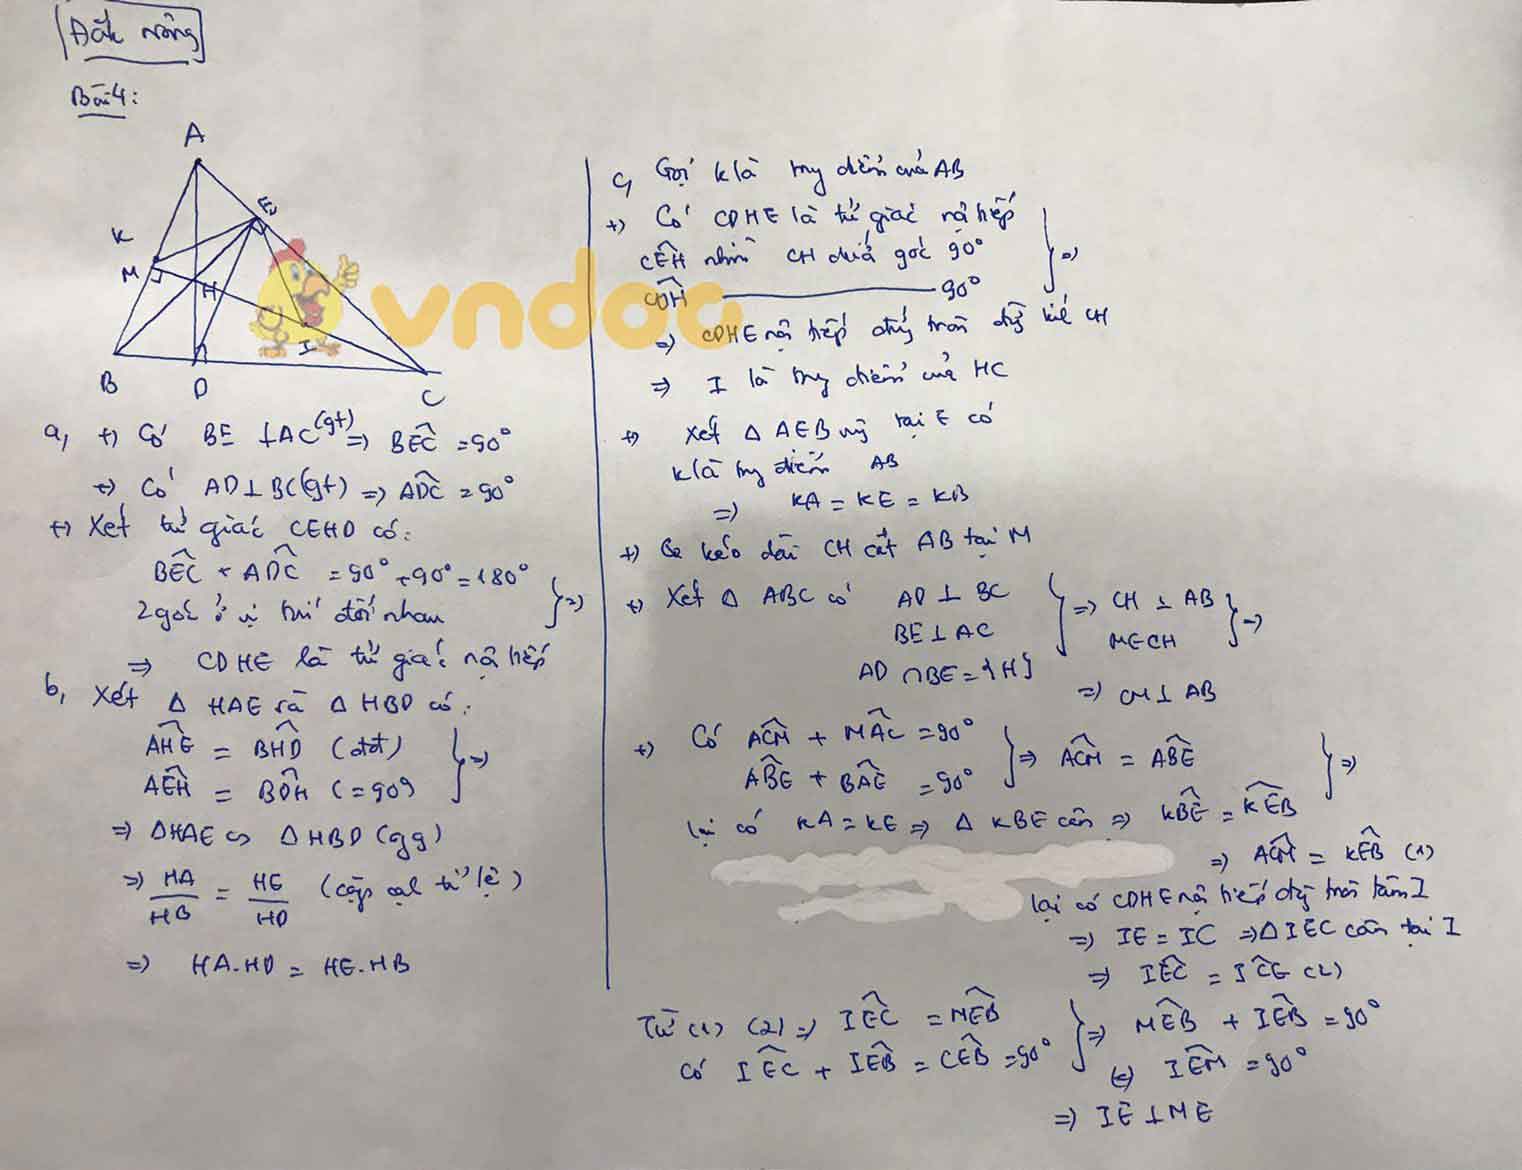 Đăk nông
Bài 4:
A
K
E
M
H
I
B
D
C
vndoc
a, +) Có BE ⊥ AC (gt) => BÊC = 90°
+) Có AD ⊥ BC (gt) => ADC = 90°
+) Xét tứ giác CEHD có:
BEC + ADC = 90° + 90° = 180°
2 góc ở vị trí đối nhau
} =>
=> CDHE là tứ giác nội tiếp
b, Xét Δ HAE và Δ HBD có:
AHE = BHD (đđ)
AEH = BDH (= 90°)
} =>
=> ΔHAE ∽ Δ HBD (gg)
=> HA/HB = HE/HD (cặp cạnh tỉ lệ)
=> HA.HD = HE.HB
c, Gọi K là trung điểm của AB
+) Có CDHE là tứ giác nội tiếp
CEH nhìn CH dưới góc 90°
CDH ——— 90°
} =>
=> CDHE nội tiếp đường tròn đường kính CH
=> I là trung điểm của HC
+) Xét Δ AEB vuông tại E có
K là trung điểm AB
=> KA = KE = KB
+) kéo dài CH cắt AB tại M
+) Xét Δ ABC có AD ⊥ BC
BE ⊥ AC
AD ∩ BE = {H}
} => CH ⊥ AB
M ∈ CH
} =>
=> CM ⊥ AB
+) Có ACM + MAC = 90°
ABE + BAE = 90°
} => ACM = ABE
lại có KA = KE => Δ KBE cân => KBE = KEB
} =>
=> ACM = KEB (1)
lại có CDHE nội tiếp đường tròn tâm I
=> IE = IC => Δ IEC cân tại I
=> IEC = ICE (2)
Từ (1) (2) => IEC = MEB
có IEC + IEB = CEB = 90°
} => MEB + IEB = 90°
(=) IEM = 90°
=> IE ⊥ ME